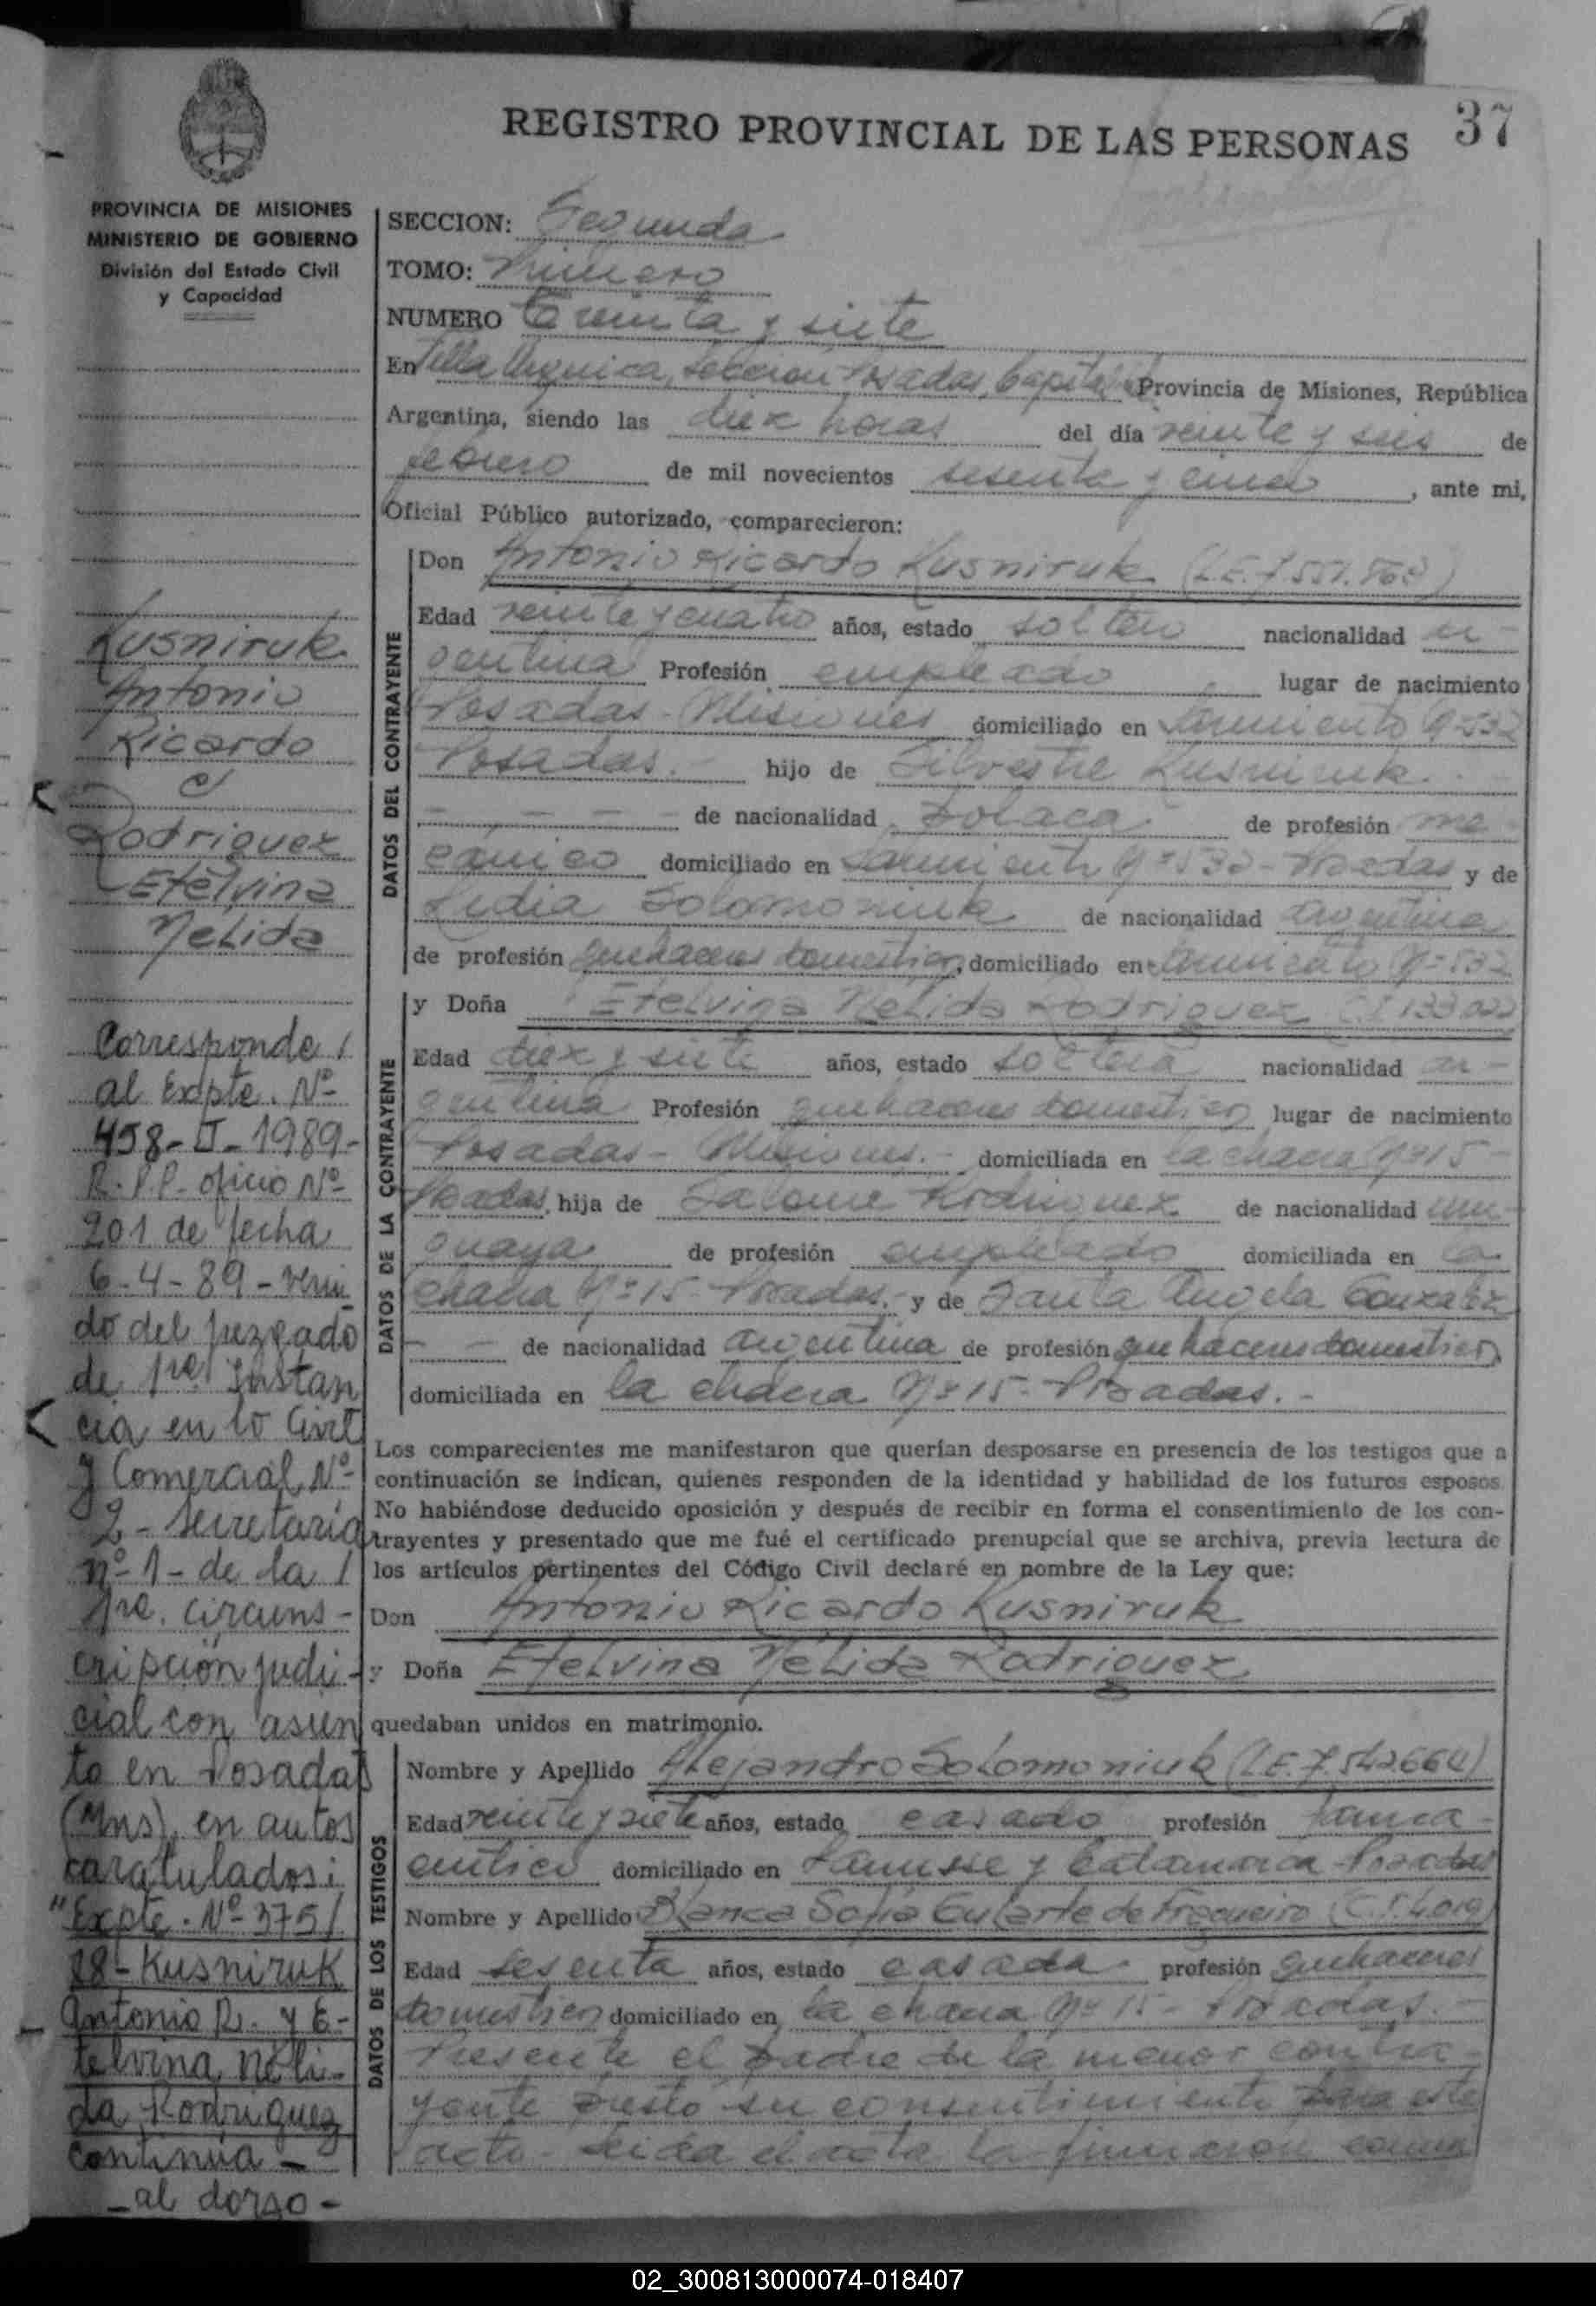 REGISTRO PROVINCIAL DE LAS PERSONAS 37
PROVINCIA DE MISIONES
MINISTERIO DE GOBIERNO
División del Estado Civil
y Capacidad
Kusniruk
Antonio
Ricardo
c/
Rodriguez
Etelvina
Nelida
Corresponde /
al Expte. Nº
458-II-1989-
R.P.P. oficio Nº
201 de fecha
6-4-89- veni
do del juzgado
de 1ra Instan
cia en lo Civil
y Comercial Nº
2- secretaria
nº 1- de la /
1ra. circuns-
cripción judi-
cial con asien
to en Posadas
(Mns), en autos
caratulados:
"Expte. Nº 375/
88- Kusniruk
Antonio R. y E-
telvina Neli-
da Rodriguez
continua -
- al dorso -
SECCION: Segunda
TOMO: Primero
NUMERO Treinta y siete
En Villa Urquiza, Sección Posadas, Capital Provincia de Misiones, República
Argentina, siendo las diez horas del día veinte y seis de
febrero de mil novecientos sesenta y cinco, ante mi,
Oficial Público autorizado, comparecieron:
DATOS DEL CONTRAYENTE
Don Antonio Ricardo Kusniruk (L.E. 7.551.868)
Edad veinte y cuatro años, estado soltero nacionalidad ar-
gentina Profesión empleado lugar de nacimiento
Posadas - Misiones domiciliado en Sarmiento Nº 532
Posadas.- hijo de Silvestre Kusniruk.
- - - - de nacionalidad Polaca de profesión me
canico domiciliado en Sarmiento Nº 532 - Posadas y de
Lidia Solomoniuk de nacionalidad argentina
de profesión quehaceres domesticos, domiciliado en Sarmiento Nº 532
DATOS DE LA CONTRAYENTE
y Doña Etelvina Nelida Rodriguez C.I. 133.022
Edad diez y siete años, estado soltera nacionalidad ar-
gentina Profesión quehaceres domesticos lugar de nacimiento
Posadas - Misiones.- domiciliada en la chacra Nº 15 -
Posadas, hija de Salome Rodriguez de nacionalidad uru-
guaya de profesión empleado domiciliada en la
chacra Nº 15 - Posadas.- y de Santa Angela Gonzalez
- - de nacionalidad argentina de profesión quehaceres domesticos
domiciliada en la chacra Nº 15 - Posadas.-
Los comparecientes me manifestaron que querían desposarse en presencia de los testigos que a
continuación se indican, quienes responden de la identidad y habilidad de los futuros esposos.
No habiéndose deducido oposición y después de recibir en forma el consentimiento de los con-
trayentes y presentado que me fué el certificado prenupcial que se archiva, previa lectura de
los artículos pertinentes del Código Civil declaré en nombre de la Ley que:
Don Antonio Ricardo Kusniruk
y Doña Etelvina Nélida Rodriguez
quedaban unidos en matrimonio.
DATOS DE LOS TESTIGOS
Nombre y Apellido Alejandro Solomoniuk (L.E. 7.542.664)
Edad veinte y siete años, estado casado profesión farma-
ceutico domiciliado en Lanusse y Catamarca - Posadas
Nombre y Apellido Blanca Sofia Eularte de Fragueiro (C.I. 4.019)
Edad sesenta años, estado casada profesión quehaceres
domesticos domiciliado en la chacra Nº 15 - Posadas.-
Presente el padre de la menor contra-
yente presto su consentimiento para este
acto - Leida el acta la firmaron como
02_300813000074-018407